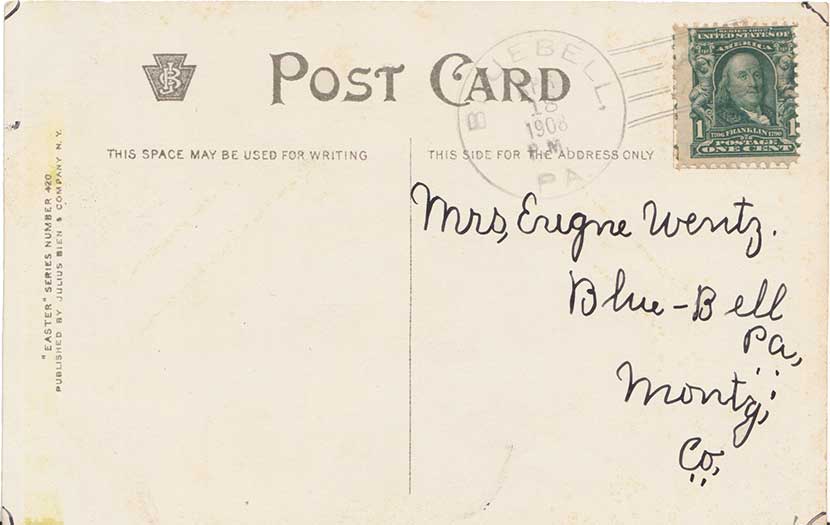 POST CARD
BLUE BELL,
18
1908
P.M.
PA.
SERIES 1902
UNITED STATES OF
AMERICA
1 1706 FRANKLIN 1790 1
POSTAGE
ONE CENT
THIS SPACE MAY BE USED FOR WRITING
THIS SIDE FOR THE ADDRESS ONLY
Mrs, Eugne Wentz.
Blue-Bell
Pa,
Montg,
Co,
"EASTER" SERIES NUMBER 420
PUBLISHED BY JULIUS BIEN & COMPANY N.Y.